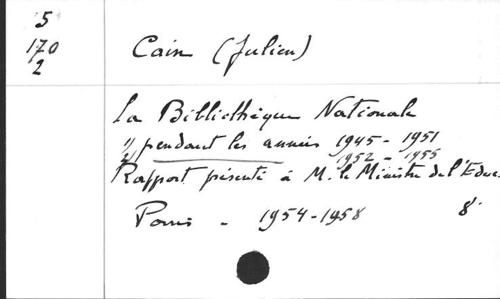 5
170
2
Cain (Julien)
La Bibliothèque Nationale
1) pendant les années 1945 - 1951
2) 1952 - 1955
Rapport présenté à M. le Ministre de l'Educ.
Paris - 1954-1958 8°